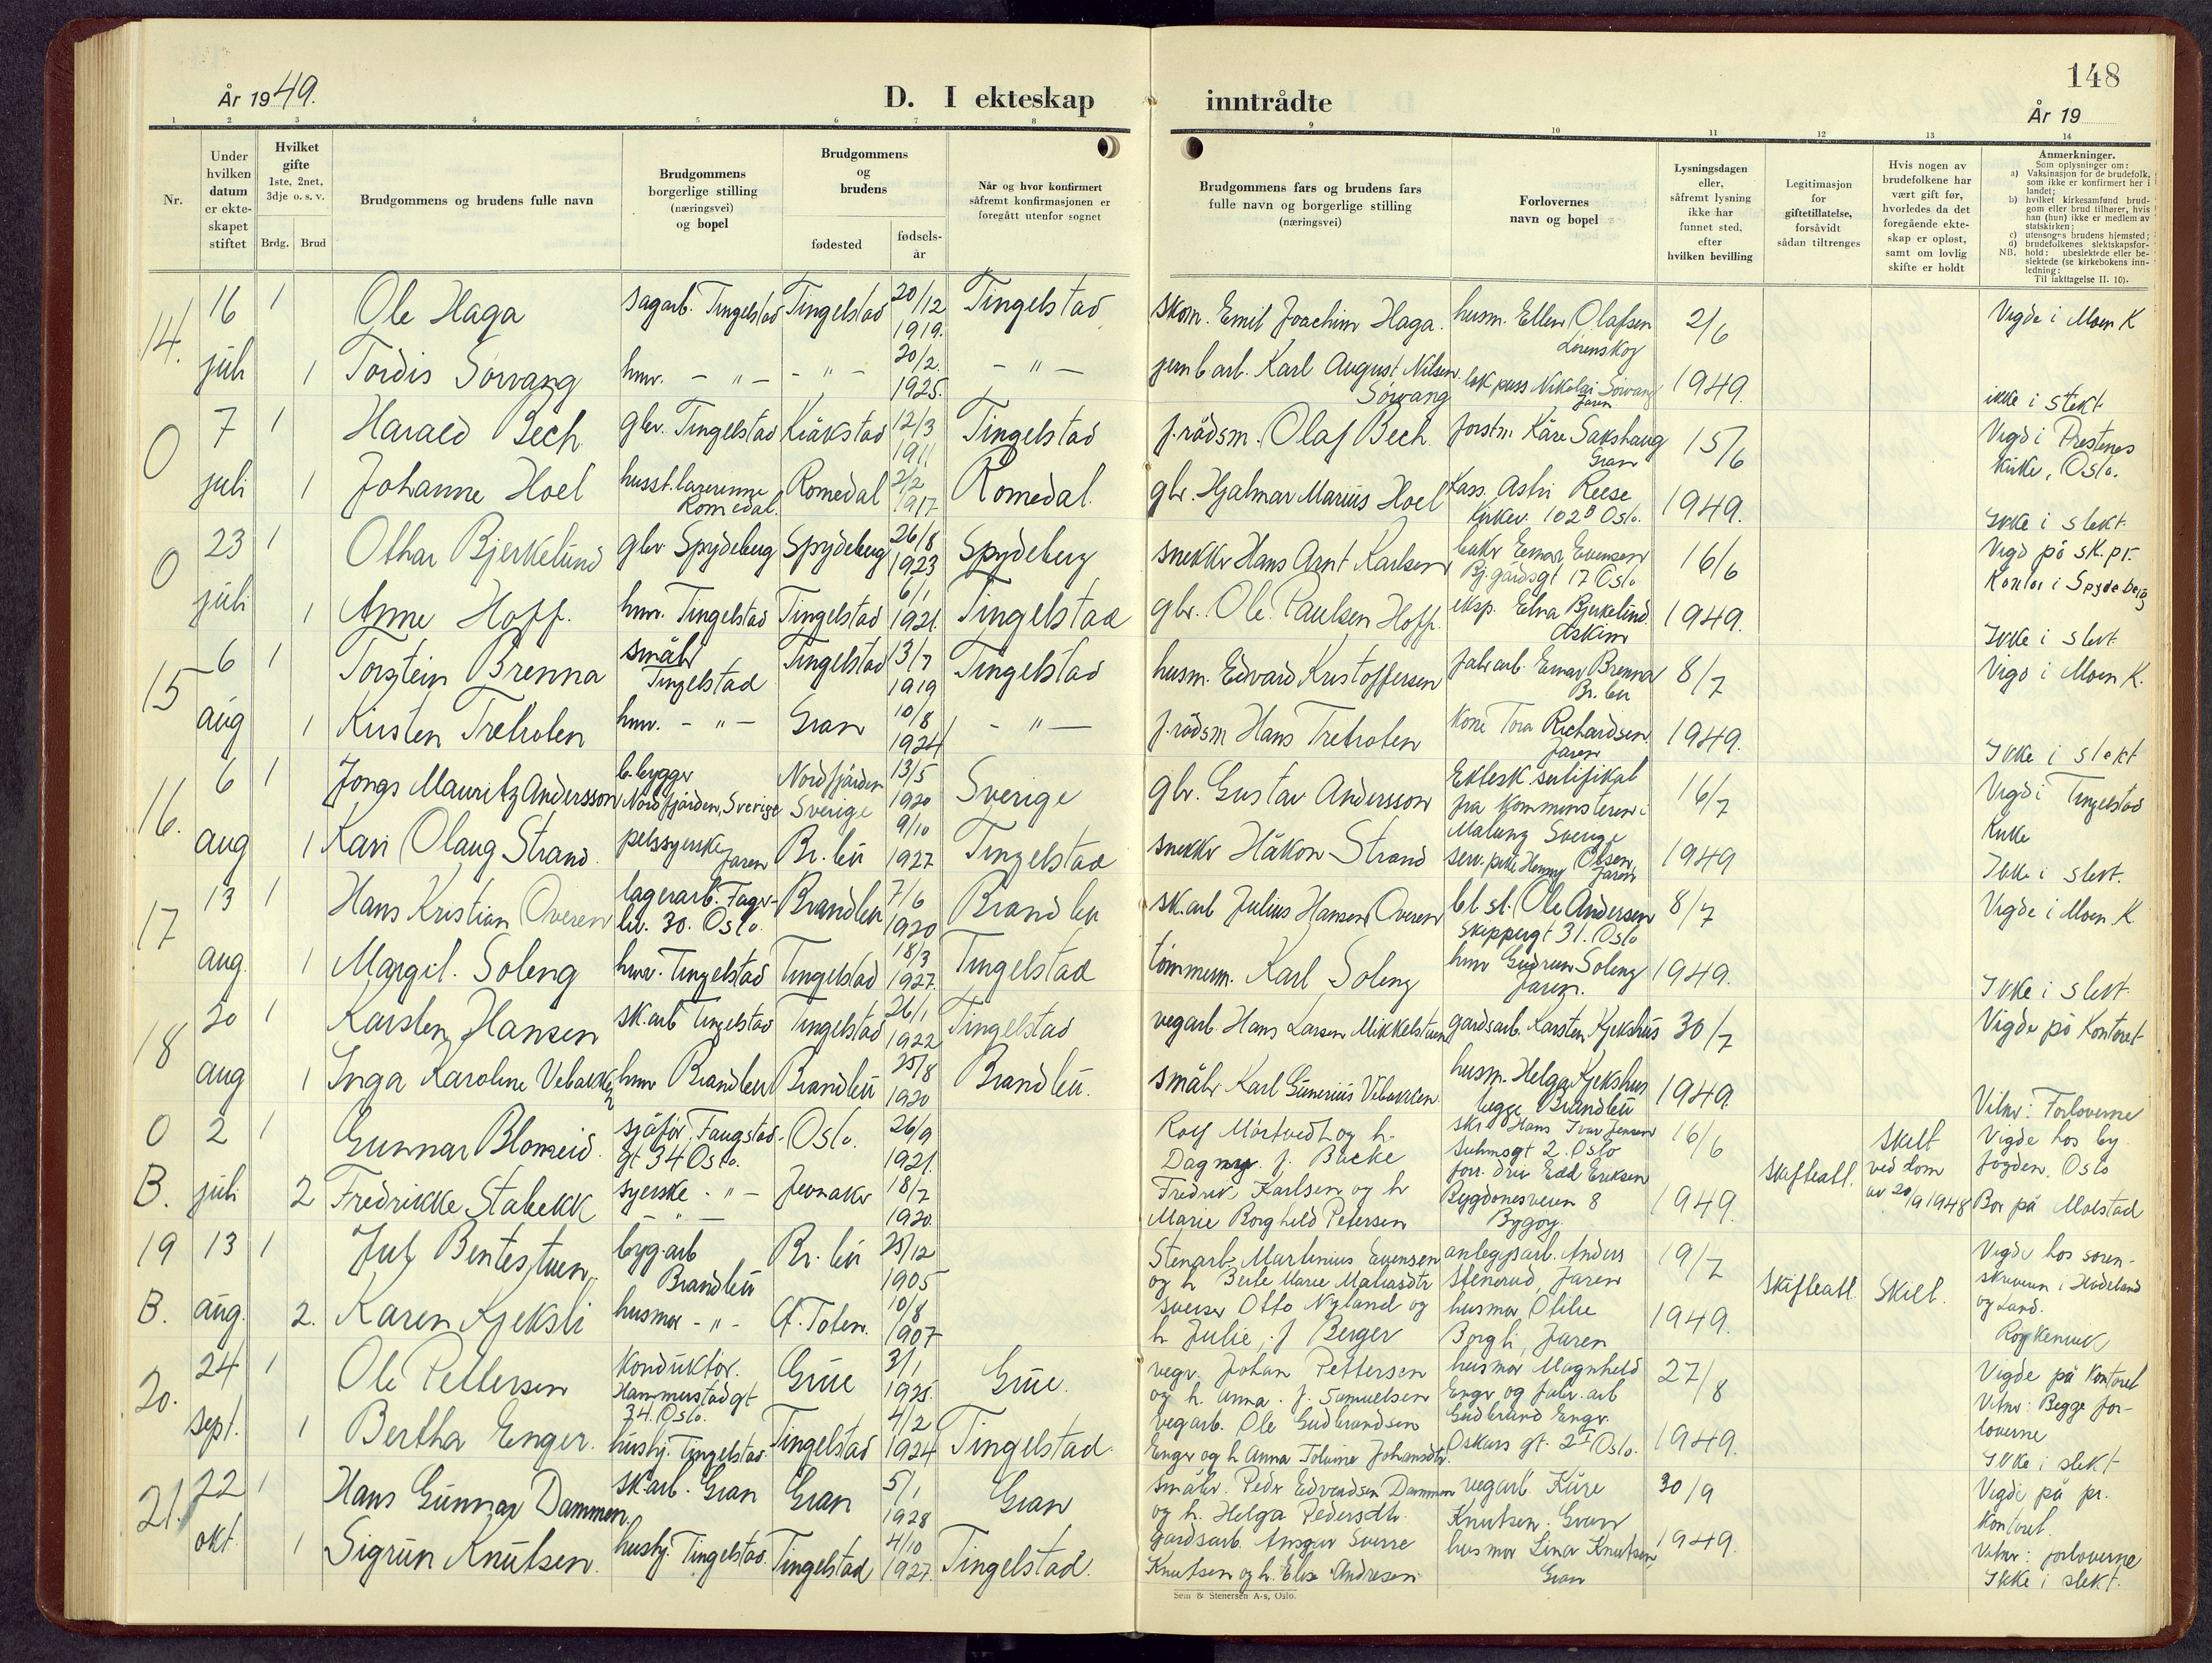 148
År 1949.
D. I ekteskap inntrådte
År 19
1 2 3 4 5 6 7 8 9 10 11 12 13 14
Nr.
Under hvilken datum er ekte-skapet stiftet
Hvilket gifte 1ste, 2net, 3dje o. s. v.
Brdg. Brud
Brudgommens og brudens fulle navn
Brudgommens borgerlige stilling (næringsvei) og bopel
Brudgommens og brudens
fødested
fødsels-år
Når og hvor konfirmert såfremt konfirmasjonen er foregått utenfor sognet
Brudgommens fars og brudens fars fulle navn og borgerlige stilling (næringsvei)
Forlovernes navn og bopel
Lysningsdagen eller, såfremt lysning ikke har funnet sted, efter hvilken bevilling
Legitimasjon for giftetillatelse, forsåvidt sådan tiltrenges
Hvis nogen av brudefolkene har vært gift før, hvorledes da det foregående ekte-skap er opløst, samt om lovlig skifte er holdt
Anmerkninger.
Som oplysninger om:
a) Vaksinasjon for de brudefolk, som ikke er konfirmert her i landet;
b) hvilket kirkesamfund brud-gom eller brud tilhører, hvis han (hun) ikke er medlem av statskirken;
c) utensogns brudens hjemsted;
d) brudefolkenes slektskapsfor-hold: ubeslektede eller be-slektede (se kirkebokens inn-ledning:
NB. Til iakttagelse II. 10).
14. 16 1 Ole Haga sagarb. Tingelstad Tingelstad 20/12 1919. Tingelstad skom. Emil Joachim Haga. husm. Ellen Olafsen Lørenskog 2/6 Vigde i Moen K
juli 1 Tordis Sørvang hmv. - " - - " - 20/2. 1925. - " - jernb arb. Karl August Nilsen Sørvang lok puss Nikolai Sørvang Jaren 1949. ikke i slekt
0 7 1 Harald Bech gbr. Tingelstad Kråkstad 12/3 1911 Tingelstad f.rådsm. Olaf Bech. forstm. Kåre Sakshaug Gran 15/6 Vigd i Prestenes kirke, Oslo.
juli 1 Johanne Hoel husst.lærerinne Romedal. Romedal 2/2 1917. Romedal. gbr. Hjalmar Marius Hoel Kass. Astri Reese Kirkev. 102B Oslo. 1949. Ikke i slekt.
0 23 1 Othar Bjerkelund gbr Spydeberg Spydeberg 26/8 1923 Spydeberg snekker Hans Arnt Karlsen baker Einar Evensen Bj.gårdsgt 17 Oslo 16/6 Vigd på sk.pr. Kontor i Spydeberg
juli 1 Anne Hoff. hmv. Tingelstad Tingelstad 6/1 1921. Tingelstad gbr. Ole Paulsen Hoff. eksp. Elna Bjerkelund. Askim 1949. Ikke i slekt
15 6 1 Torstein Brenna småbr Tingelstad Tingelstad 13/7 1919 Tingelstad husm. Edvard Kristoffersen fabr.arb. Einar Brenna Br.bu 8/7 Vigd i Moen K.
aug 1 Kirsten Tretroten hmv. - " - Gran 10/8 1924 - " - f.rådsm Hans Tretroten Kone Tora Richardsen Jaren 1949. Ikke i slekt
16. 6 1 Jonas Mauritz Andersson b.bygger Nordfjärden, Sverige Nordfjärden Sverige 13/5 1920 Sverige gbr. Gustav Andersson Ektesk sertifikat fra Komministeren i Malung Sverige 16/7 Vigd i Tingelstad Kirke
aug 1 Kari Olaug Strand. pelssyerske Jaren Br.bu 9/10 1927 Tingelstad snekker Håkon Strand serv.pike Henny Olsen Jaren 1949 Ikke i slekt.
17 13 1 Hans Kristian Overen lagerarb. Fager- 30. Oslo. Brandbu 7/6 1920 Brandbu sk.arb Julius Hansen Overen bl.sl. Ole Andersen Skippergt 31. Oslo 8/7 Vigde i Moen K
aug. 1 Margit. Soleng hmv. Tingelstad Tingelstad 18/3 1927. Tingelstad tømmerm. Karl Soleng hmv Gudrun Soleng Jaren. 1949. Ikke i slekt
18 20 1 Karsten Hansen sk.arb Tingelstad Tingelstad 26/1 1922 Tingelstad vegarb. Hans Larsen Mikkelstuen gardsarb. Karsten Kjekshus 30/7 Vigde på Kontoret
aug 1 Inga Karoline Vebakken hmv Brandbu Brandbu 25/8 1920 Brandbu. småbr Karl Gunerius Vebakken husm. Helga Kjekshus begge Brandbu 1949. Vitner: Forloverne
0 2 1 Gunnar Blomseid. sjåfør, Faugstad- gt 34 Oslo. Oslo. 26/9 1921. Rolf Mårtvedt og h. Dagny f. Backe Hans Ivar Jensen Suhmsgt 2. Oslo 16/6 Vigde hos byfogden, Oslo
B. juli 2 Fredrikke Stabekk syerske - " - Jevnaker 18/7 1920. Fredrik Karlsen og h Marie Borghild Petersen forr. driv Edd Eriksen Bygdønesveien 8 Bygdøy. 1949. Skifteatt. Skilt ved dom av 20/9 1948 Bor på Molstad
19 13 1 Juls Bentestuen byg.arb Brandbu Br.bu 25/12 1905 Stenarb. Martinius Evensen og h Berte Marie Matiasdtr anleggsarb. Anders Stenerud, Jaren 19/7 Vigde hos soren- skriveren i Hadeland og Land.
B. aug. 2. Karen Kjeksli husmor - " - Ø. Toten. 10/8 1907 sveiser Otto Nyland og h Julie, f Berger husmor Olilie Borgli, Jaren 1949. Skifteatt. Skilt. Røykenvik
20. 24 1 Ole Pettersen Konduktør. Hammerstadgt 34. Oslo. Grue 3/1 1925. Grue. vegv. Johan Pettersen og h. Anna. f. Samuelsen husmor Magnhild Enger og fabr.arb 27/8 Vigde på Kontoret Vitner: Begge for-
sept. 1 Bertha Enger. hushj. Tingelstad. Tingelstad 4/2 1924 Tingelstad. vegarb. Ole Gudbrandsen Enger og h Anna Toline Johansdtr. Gudbrand Enger. Oskars gt. 2I Oslo. 1949. loverne Ikke i slekt
21. 22 1 Hans Gunnar Dammen. sk.arb. Gran Gran 5/1 1928 Gran småbr. Peder Edvardsen Dammen og h. Helga Pedersdtr. vegarb. Kåre Knutsen. Gran 30/9 Vigde på pr. Kontoret.
okt. 1 Sigrun Knutsen. hushj. Tingelstad. Tingelstad 4/10 1927. Tingelstad. gardsarb. Ansgar Sverre Knutsen og h. Elise Andresen. husmor Lina Knutsen, Gran 1949. Vitner: forloverne Ikke i slekt.
Sem & Stenersen A-s, Oslo.